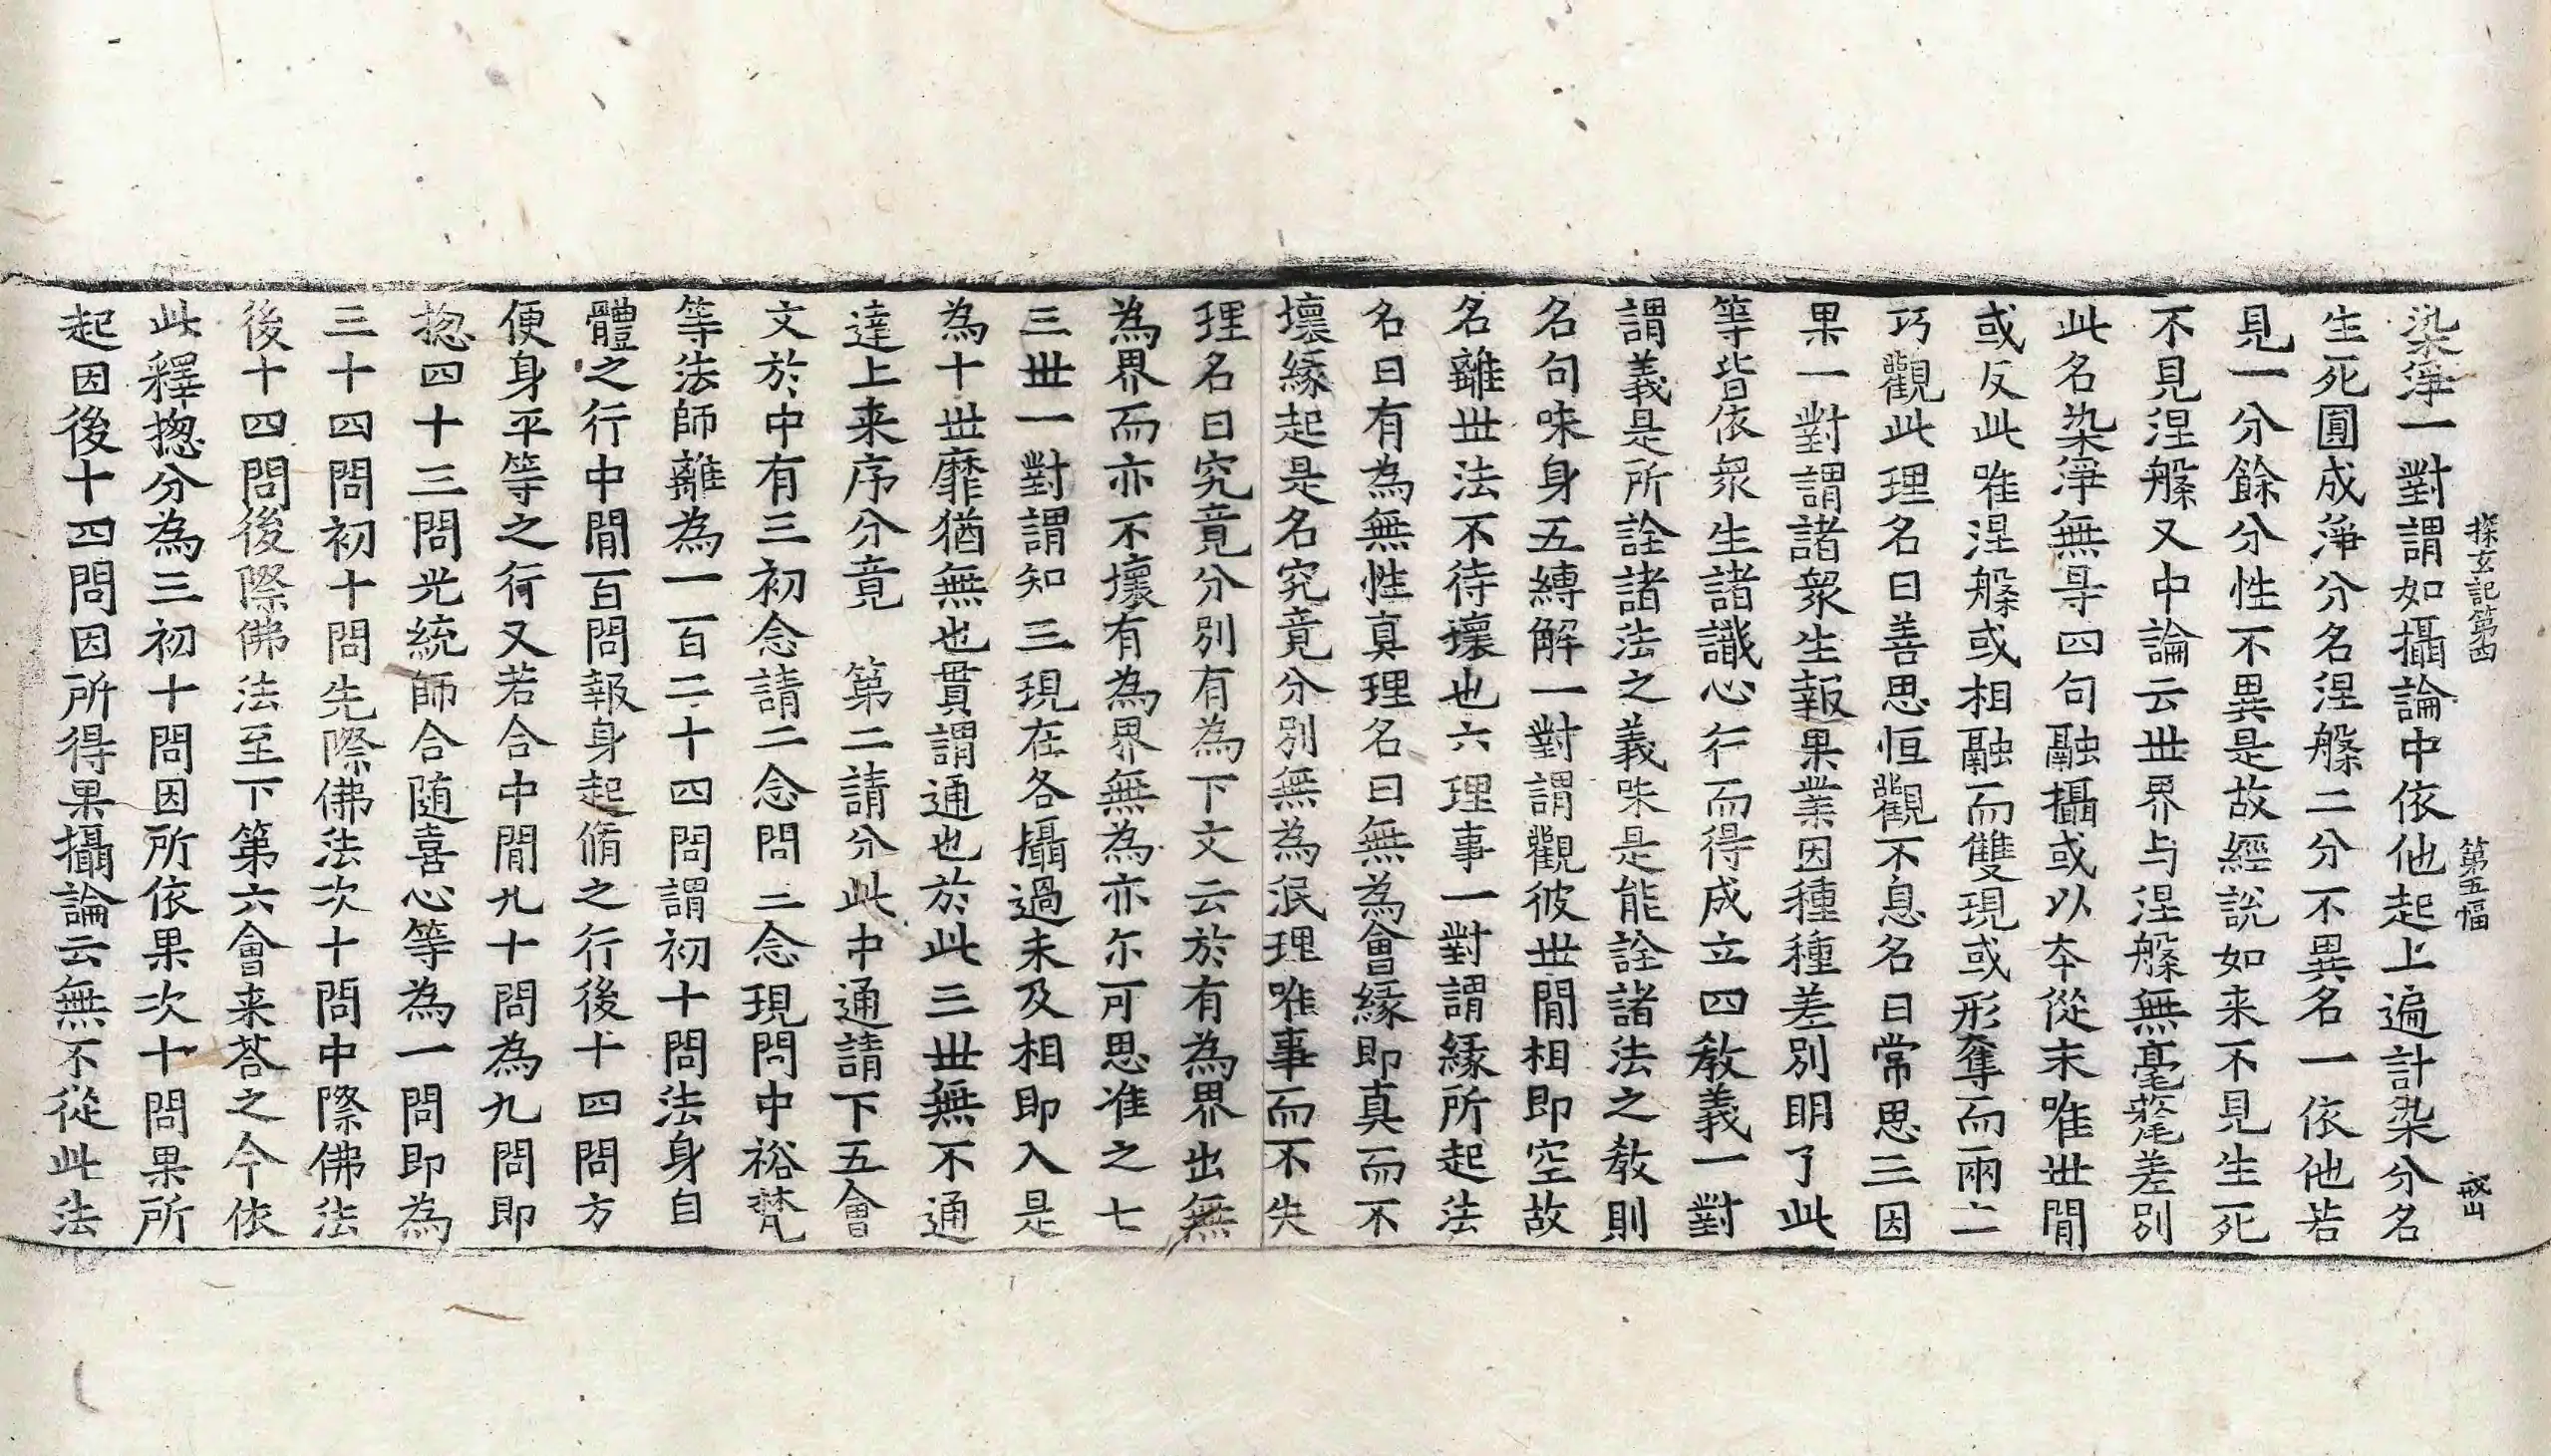 探玄記第四 第五幅 戒山
染淨一對謂如攝論中依他起上遍計染分名
生死圓成淨分名涅槃二分不異名一依他若
見一分餘分性不異是故經說如来不見生死
不見涅槃又中論云世界与涅槃無毫氂差別
此名染淨無㝵四句融攝或以夲從末唯世間
或反此唯涅槃或相融而雙現或形奪而兩亡
巧觀此理名曰善思恒觀不息名曰常思三因
果一對謂諸衆生報果業因種種差別明了此
等皆依衆生諸識心行而得成立四教義一對
謂義是所詮諸法之義味是能詮諸法之教則
名句味身五縛解一對謂觀彼世間相即空故
名離世法不待壞也六理事一對謂緣所起法
名曰有為無性真理名曰無為會緣即真而不
壞緣起是名究竟分別無為泯理唯事而不失
理名曰究竟分別有為下文云於有為界出無
為界而亦不壞有為界無為亦尓可思准之七
三世一對謂知三現在各攝過未及相即入是
為十世靡猶無也貫謂通也於此三世無不通
達上来序分竟 第二請分此中通請下五會
文於中有三初念請二念問三念現問中裕梵
等法師離為一百二十四問謂初十問法身自
體之行中間百問報身起脩之行後十四問方
便身平等之行又若合中間九十問為九問即
揔四十三問光統師合随喜心等為一問即為
三十四問初十問先際佛法次十問中際佛法
後十四問後際佛法至下第六會来荅之今依
此釋揔分為三初十問因所依果次十問果所
起因後十四問因所得果攝論云無不從此法